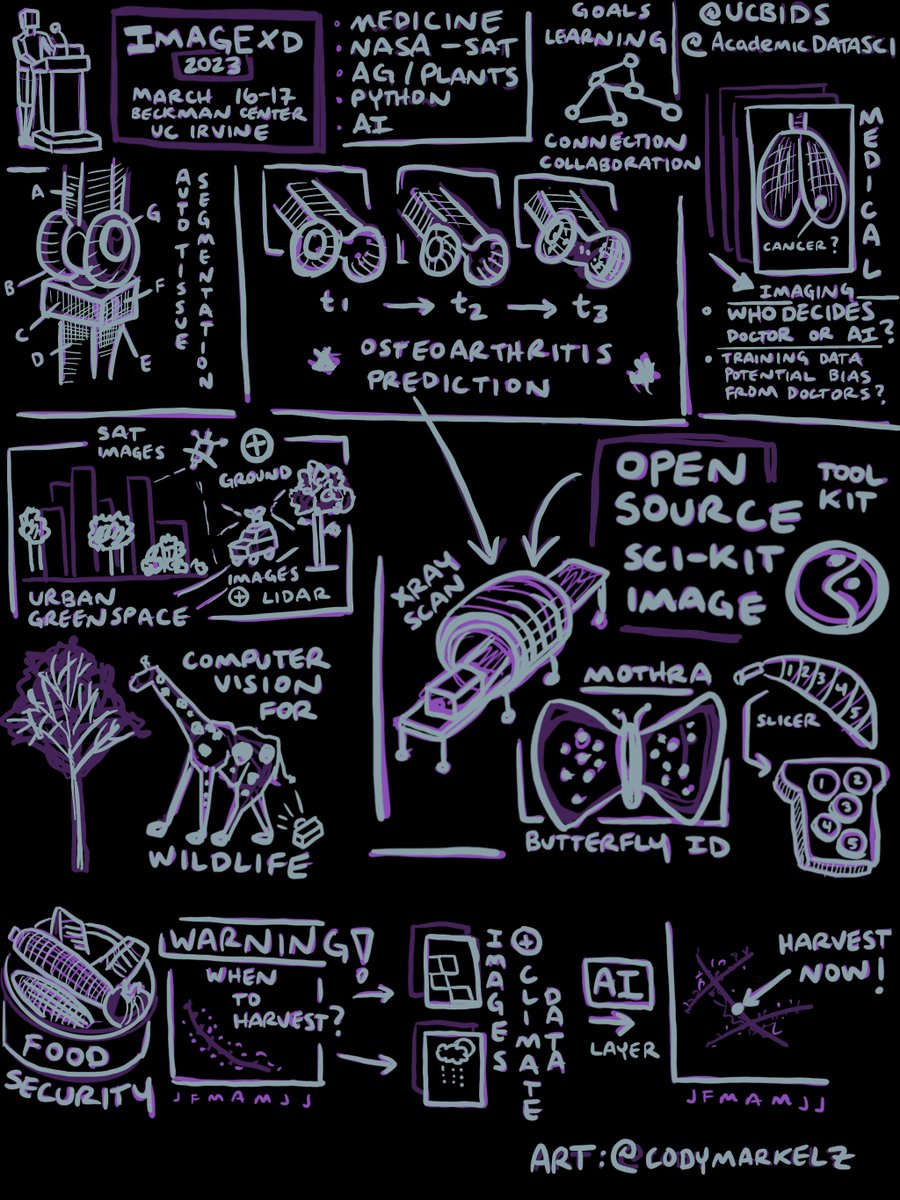 IMAGEXD
2023
MARCH 16-17
BECKMAN CENTER
UC IRVINE
• MEDICINE
• NASA - SAT
• AG / PLANTS
• PYTHON
• AI
GOALS
LEARNING
CONNECTION
COLLABORATION
@UCBIDS
@AcademicDATASCI
A
G
B
F
C
D
E
AUTO TISSUE
SEGMENTATION
t1 → t2 → t3
OSTEOARTHRITIS
PREDICTION
MEDICAL
CANCER?
IMAGING
• WHO DECIDES
DOCTOR OR AI?
• TRAINING DATA
POTENTIAL BIAS
FROM DOCTORS?
SAT
IMAGES
+
GROUND
IMAGES
+ LIDAR
URBAN
GREENSPACE
XRAY
SCAN
OPEN
SOURCE
SCI-KIT
IMAGE
TOOL
KIT
COMPUTER
VISION
FOR
WILDLIFE
MOTHRA
BUTTERFLY ID
1 2 3 4 5
SLICER
1 2
3
4
5
FOOD
SECURITY
WARNING!
WHEN
TO
HARVEST?
J F M A M J J
IMAGES
+ CLIMATE
DATA
AI
LAYER
HARVEST
NOW!
J F M A M J J
ART: @CODYMARKELZ